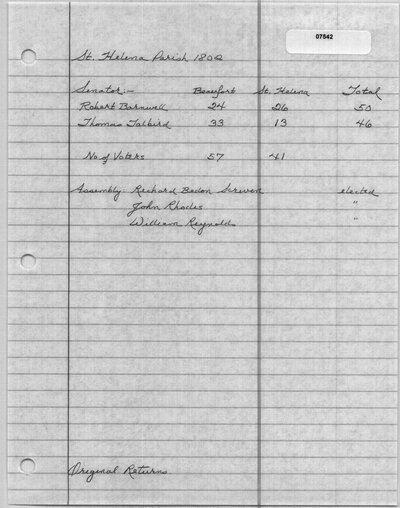 07542
St. Helena Parish 1802
Senator:- Beaufort St. Helena Total
Robert Barnwell 24 26 50
Thomas Talbird 33 13 46
No of Voters 57 41
Assembly: Richard Bedon Screven elected
John Rhodes "
William Reynolds "
Original Returns